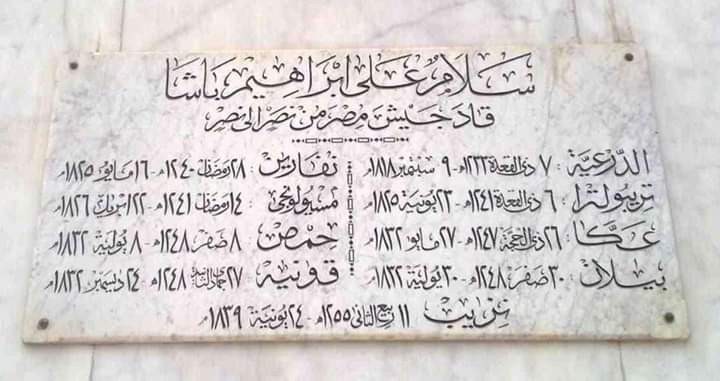 سلام على ابراهيم باشا
قاد جيش مصر من نصر الى نصر
الدّرعيّة : ٧ ذى القعدة ١٢٣٣هـ - ٩ سبتمبر ١٨١٨م
تريبولتزا : ٦ ذى القعدة ١٢٤١هـ - ٢٣ يونية ١٨٢٥م
عكا : ٢٦ ذى الحجة ١٢٤٧هـ - ٢٧ مايو ١٨٣٢م
بيلان : ٣٠ صفر ١٢٤٨هـ - ٣٠ يولية ١٨٣٢م
نفارين : ٢٨ رمضان ١٢٤٠هـ - ١٦ مايو ١٨٢٥م
مسولونجى : ١٤ رمضان ١٢٤١هـ - ٢٢ ابريل ١٨٢٦م
حمص : ٨ صفر ١٢٤٨هـ - ٨ يولية ١٨٣٢م
قونية : ٢٧ جماد الثانية ١٢٤٨هـ - ٢٤ ديسمبر ١٨٣٢م
نزيب : ١١ ربيع الثانى ١٢٥٥هـ - ٢٤ يونية ١٨٣٩م